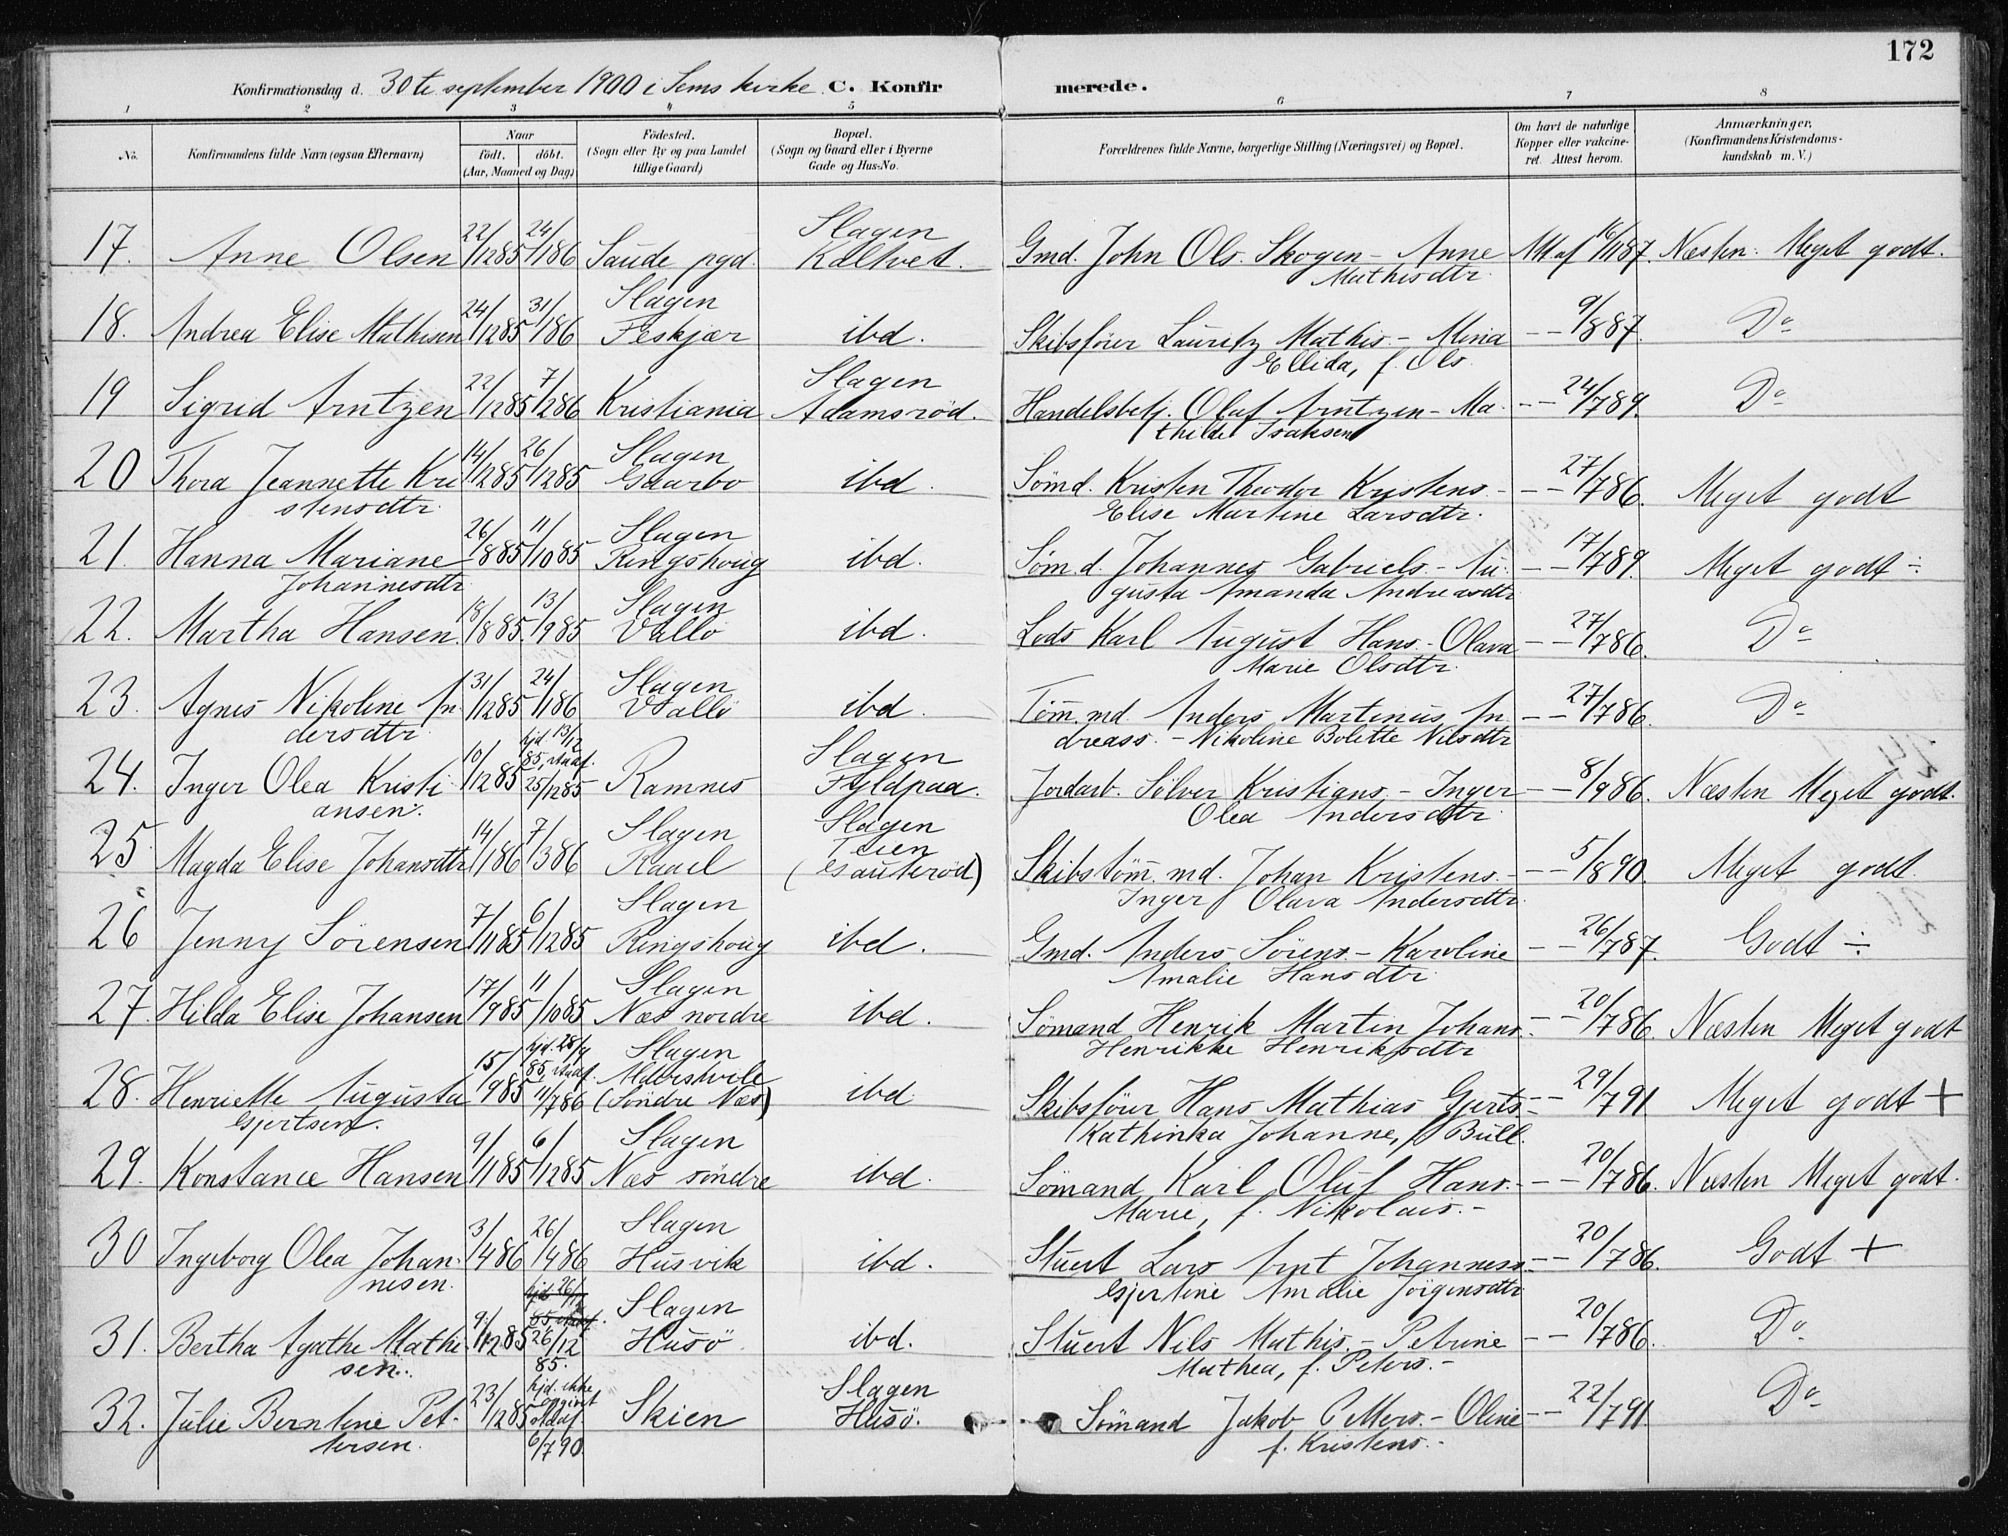 172
Konfirmationsdag d. 30te september 1900 i Sems kirke. C. Konfirmerede.
1 2 3 4 5 6 7 8
No. Konfirmandens fulde Navn (ogsaa Efternavn) Naar födt. döbt. (Aar, Maaned og Dag) Födested. (Sogn eller By og paa Landet tillige Gaard) Bopæl. (Sogn og Gaard eller i Byerne Gade og Hus-No. Forældrenes fulde Navne, borgerlige Stilling (Næringsvei) og Bopæl. Om havt de naturlige Kopper eller vakcineret. Attest herom. Anmærkninger. (Konfirmandens Kristendomskundskab m. V.)
17. Anne Olsen 22/1285 24/186 Saude pgd. Slagen Kaltvet. Gmd. John Ols. Skogen - Anne Mathisdtr. Att af 16/1187. Næsten Meget godt.
18. Andrea Elise Mathisen 24/1285 31/186 Slagen Feskjær ibd. Skibsförer Lauritz Mathis. - Mina Ellida, f. Ols. - - 9/887. Do
19 Sigrid Arntzen 22/1285 7/286 Kristiania Slagen Adamsröd. Handelsbetj. Olaf Arntzen - Mathilde Isaksen - - 24/789. Do
20 Thora Jeannette Kristensdtr. 14/1285 26/1285 Slagen Gaarbo ibd. Sömd. Kristen Theodor Kristens. - Elise Martine Larsdtr. - - 27/786. Meget godt
21. Hanna Mariane Johannesdtr. 26/885 11/1085 Slagen Ringshoug ibd. Söm.d. Johannes Gabriels. - Augusta Amanda Andreasdtr. - - 17/789. Meget godt ÷
22. Martha Hansen. 18/885. 13/985 Slagen Vallö ibd. Lods Karl August Hans. - Olava Marie Olsdtr. - - 27/786. Do
23. Agnes Nikoline Andersdtr. 31/1285 24/186 Slagen Vallö ibd. Töm̄.md. Anders Martinus Andreass. - Nikoline Bolette Nilsdtr. - - 27/786. Do
24. Inger Olea Kristiansen. 10/1285 hjd 13/12 85, stadf. 25/1285 Ramnes Slagen Fyldpaa. Jordarb. Sölver Kristians. - Inger Olea Andersdtr. - - 8/986. Næsten Meget godt.
25 Magda Elise Johansdtr. 14/186 7/386 Slagen Raael Slagen Teien (Gauteröd) Skibstöm̄.md. Johan Kristens. - Inger Olava Andersdtr. - - 5/890. Meget godt.
26 Jenny Sörensen 7/1185 6/1285 Slagen Ringshoug ibd. Gmd. Anders Sörens. - Karoline Amalie Hansdtr. - - 26/787. Godt ÷
27. Hilda Elise Johansen 17/985 11/1085 Slagen Næs nordre ibd. Sömand Henrik Martin Johans. Henrikke Henriksdtr. - - 20/786. Næsten Meget godt
28. Henriette Augusta Gjertsen. 15/985 hjd. 28/9 85, stadf. 11/786 Slagen Aldershvile (Söndre Næs) ibd. Skibsförer Hans Mathias Gjerts. - Kathinka Johanne, f. Büll. - - 29/791 Meget godt +
29. Konstance Hansen 9/1185 6/1285 Slagen Næs söndre ibd. Sömand Karl Oluf Hans. - Marie, f. Nikolais. - - - 20/786. Næsten Meget godt.
30 Ingeborg Olea Johannesen. 3/486 26/486 Slagen Husvik ibd. Stuert Lars Arnt Johanness. - Gjertine Amalie Jörgensdtr. - - 20/786. Godt +
31. Bertha Agathe Mathisen. 9/1285 26/12 85. Slagen Husö ibd. Stuert Nils Mathis. - Petrine Mathea, f. Peters. - - - 20/786. Do
32. Julie Berntine Pettersen. 23/1285 hjd. ikke opgivet stadf. 6/790 Skien Slagen Husö. Sömand Jakob Petters. - Oline f. Kristens. - - - 22/791. Do